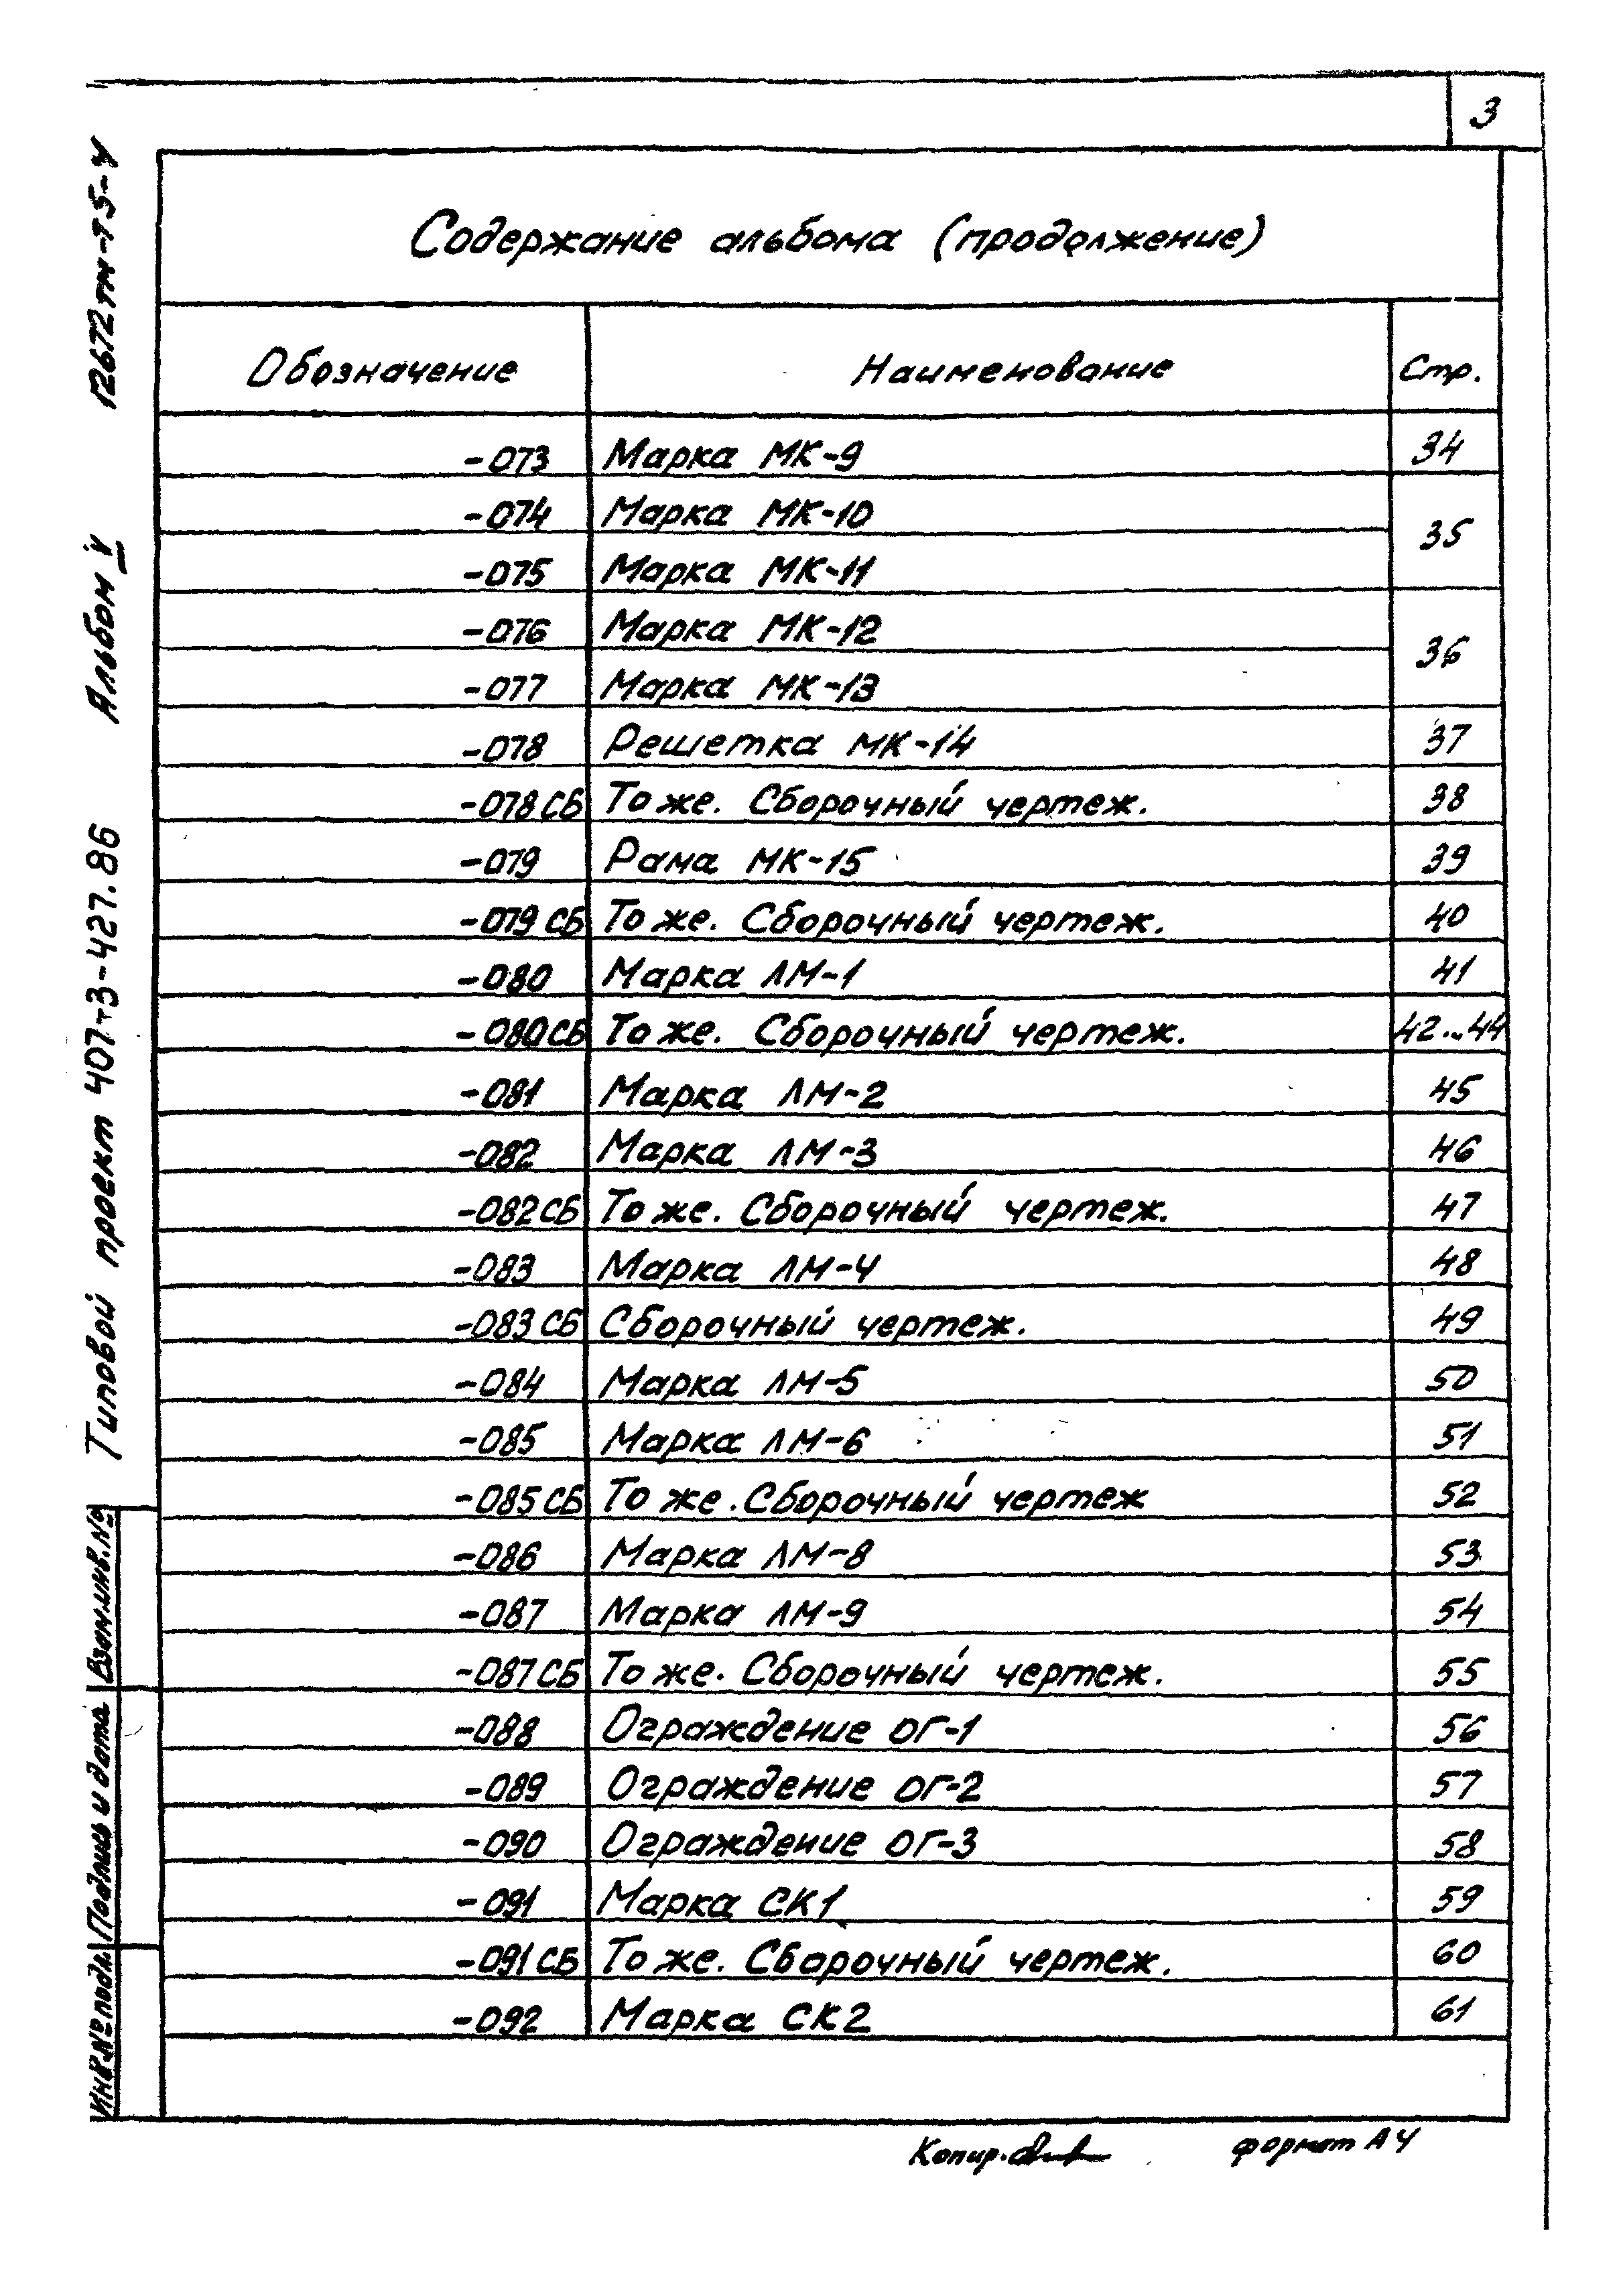 3
Содержание альбома (продолжение)
Обозначение Наименование Стр.
-073 Марка МК-9 34
-074 Марка МК-10 35
-075 Марка МК-11
-076 Марка МК-12 36
-077 Марка МК-13
-078 Решетка МК-14 37
-078 СБ То же. Сборочный чертеж. 38
-079 Рама МК-15 39
-079 СБ То же. Сборочный чертеж. 40
-080 Марка ЛМ-1 41
-080 СБ То же. Сборочный чертеж. 42...44
-081 Марка ЛМ-2 45
-082 Марка ЛМ-3 46
-082 СБ То же. Сборочный чертеж. 47
-083 Марка ЛМ-4 48
-083 СБ Сборочный чертеж. 49
-084 Марка ЛМ-5 50
-085 Марка ЛМ-6 51
-085 СБ То же. Сборочный чертеж 52
-086 Марка ЛМ-8 53
-087 Марка ЛМ-9 54
-087 СБ То же. Сборочный чертеж. 55
-088 Ограждение ОГ-1 56
-089 Ограждение ОГ-2 57
-090 Ограждение ОГ-3 58
-091 Марка СК1 59
-091 СБ То же. Сборочный чертеж. 60
-092 Марка СК2 61
Копир. Формат А4
Типовой проект 407-3-427.86 Альбом V 12672тм-т5-4
Инв.№ подл. Подпись и дата Взам.инв.№